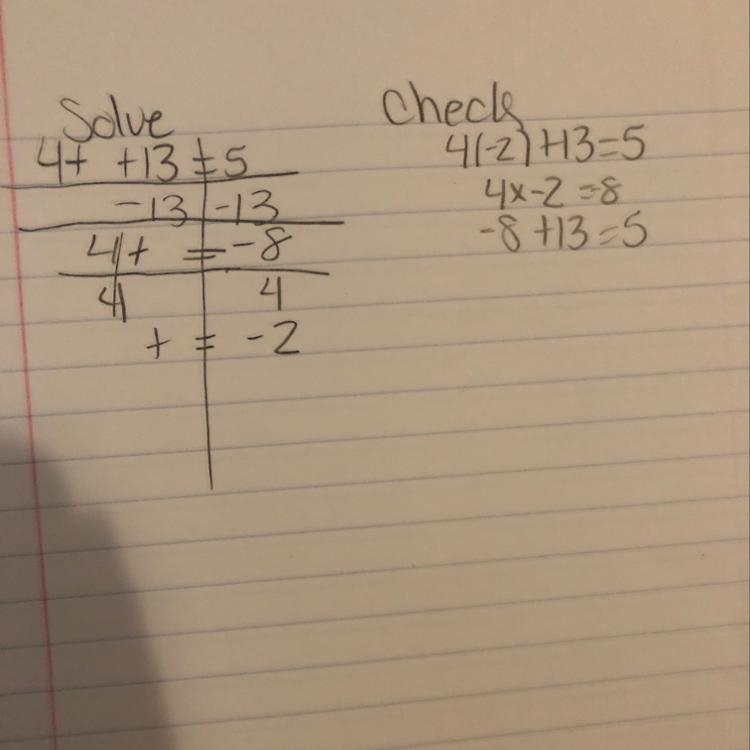 Solve
4t +13 = 5
-13 -13
4t = -8
4 4
t = -2
Check
4(-2)+13=5
4x-2=8
-8+13=5